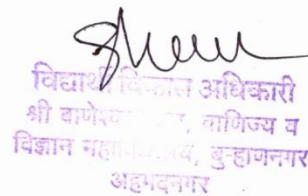 विद्यार्थी विकास अधिकारी
श्री बाणेश्वर वाणिज्य व
विज्ञान महाविद्यालय, बु-हाणनगर
अहमदनगर